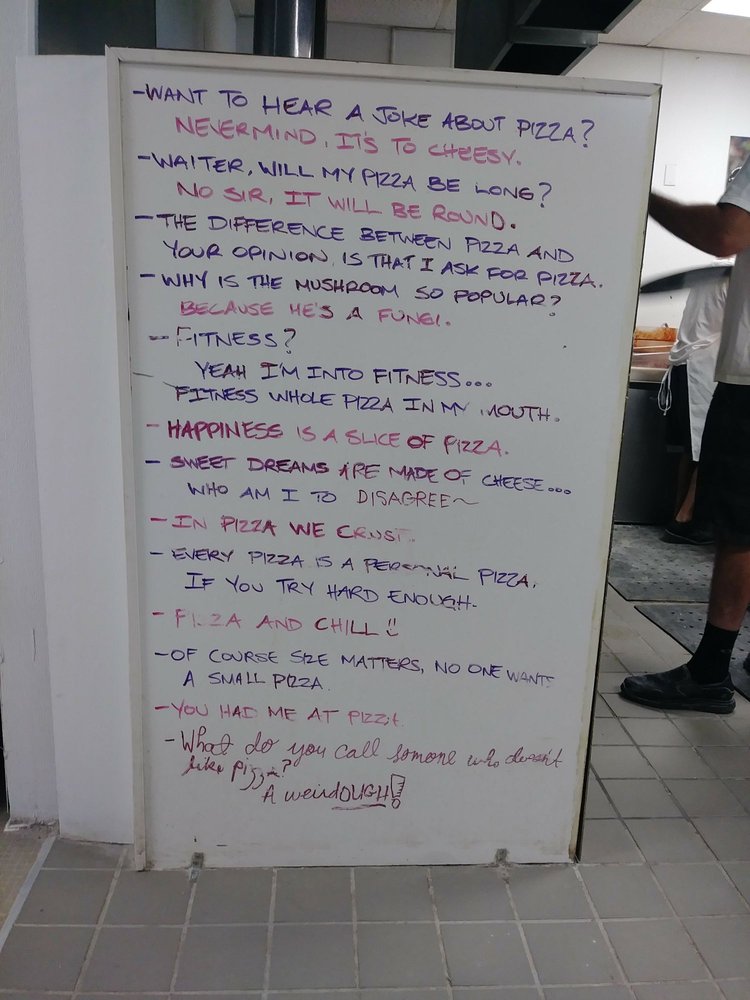 -WANT TO HEAR A JOKE ABOUT PIZZA?
NEVERMIND, IT'S TO CHEESY.
-WAITER, WILL MY PIZZA BE LONG?
NO SIR, IT WILL BE ROUND.
-THE DIFFERENCE BETWEEN PIZZA AND
YOUR OPINION, IS THAT I ASK FOR PIZZA.
-WHY IS THE MUSHROOM SO POPULAR?
BECAUSE HE'S A FUNGI.
-FITNESS?
YEAH I'M INTO FITNESS...
FITNESS WHOLE PIZZA IN MY MOUTH.
-HAPPINESS IS A SLICE OF PIZZA.
-SWEET DREAMS ARE MADE OF CHEESE...
WHO AM I TO DISAGREE~
-IN PIZZA WE CRUST.
-EVERY PIZZA IS A PERSONAL PIZZA,
IF YOU TRY HARD ENOUGH.
-PIZZA AND CHILL!!
-OF COURSE SIZE MATTERS, NO ONE WANTS
A SMALL PIZZA.
-YOU HAD ME AT PIZZA.
-What do you call somone who doesn't
like pizza?
A weirdOUGH!